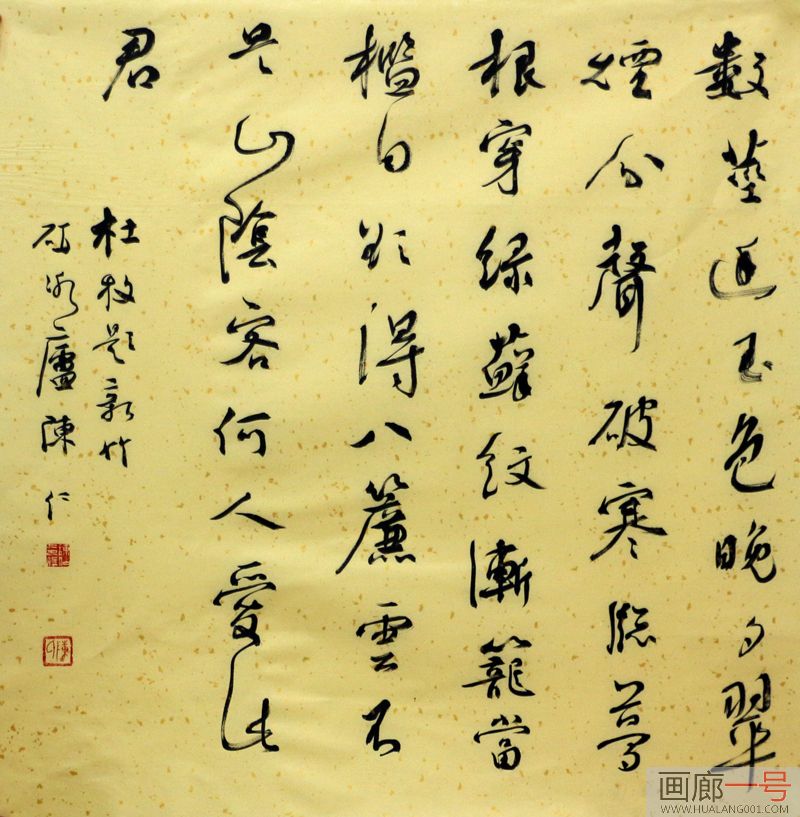 數莖玉色晚夕翠
煙分聲破寒牕夢
根穿綠蘚紋漸籠當
檻日欲得入簾雲不
是山陰客何人愛此
君
杜牧題新竹
廬陳仁
画廊一号
WWW.HUALANG001.COM